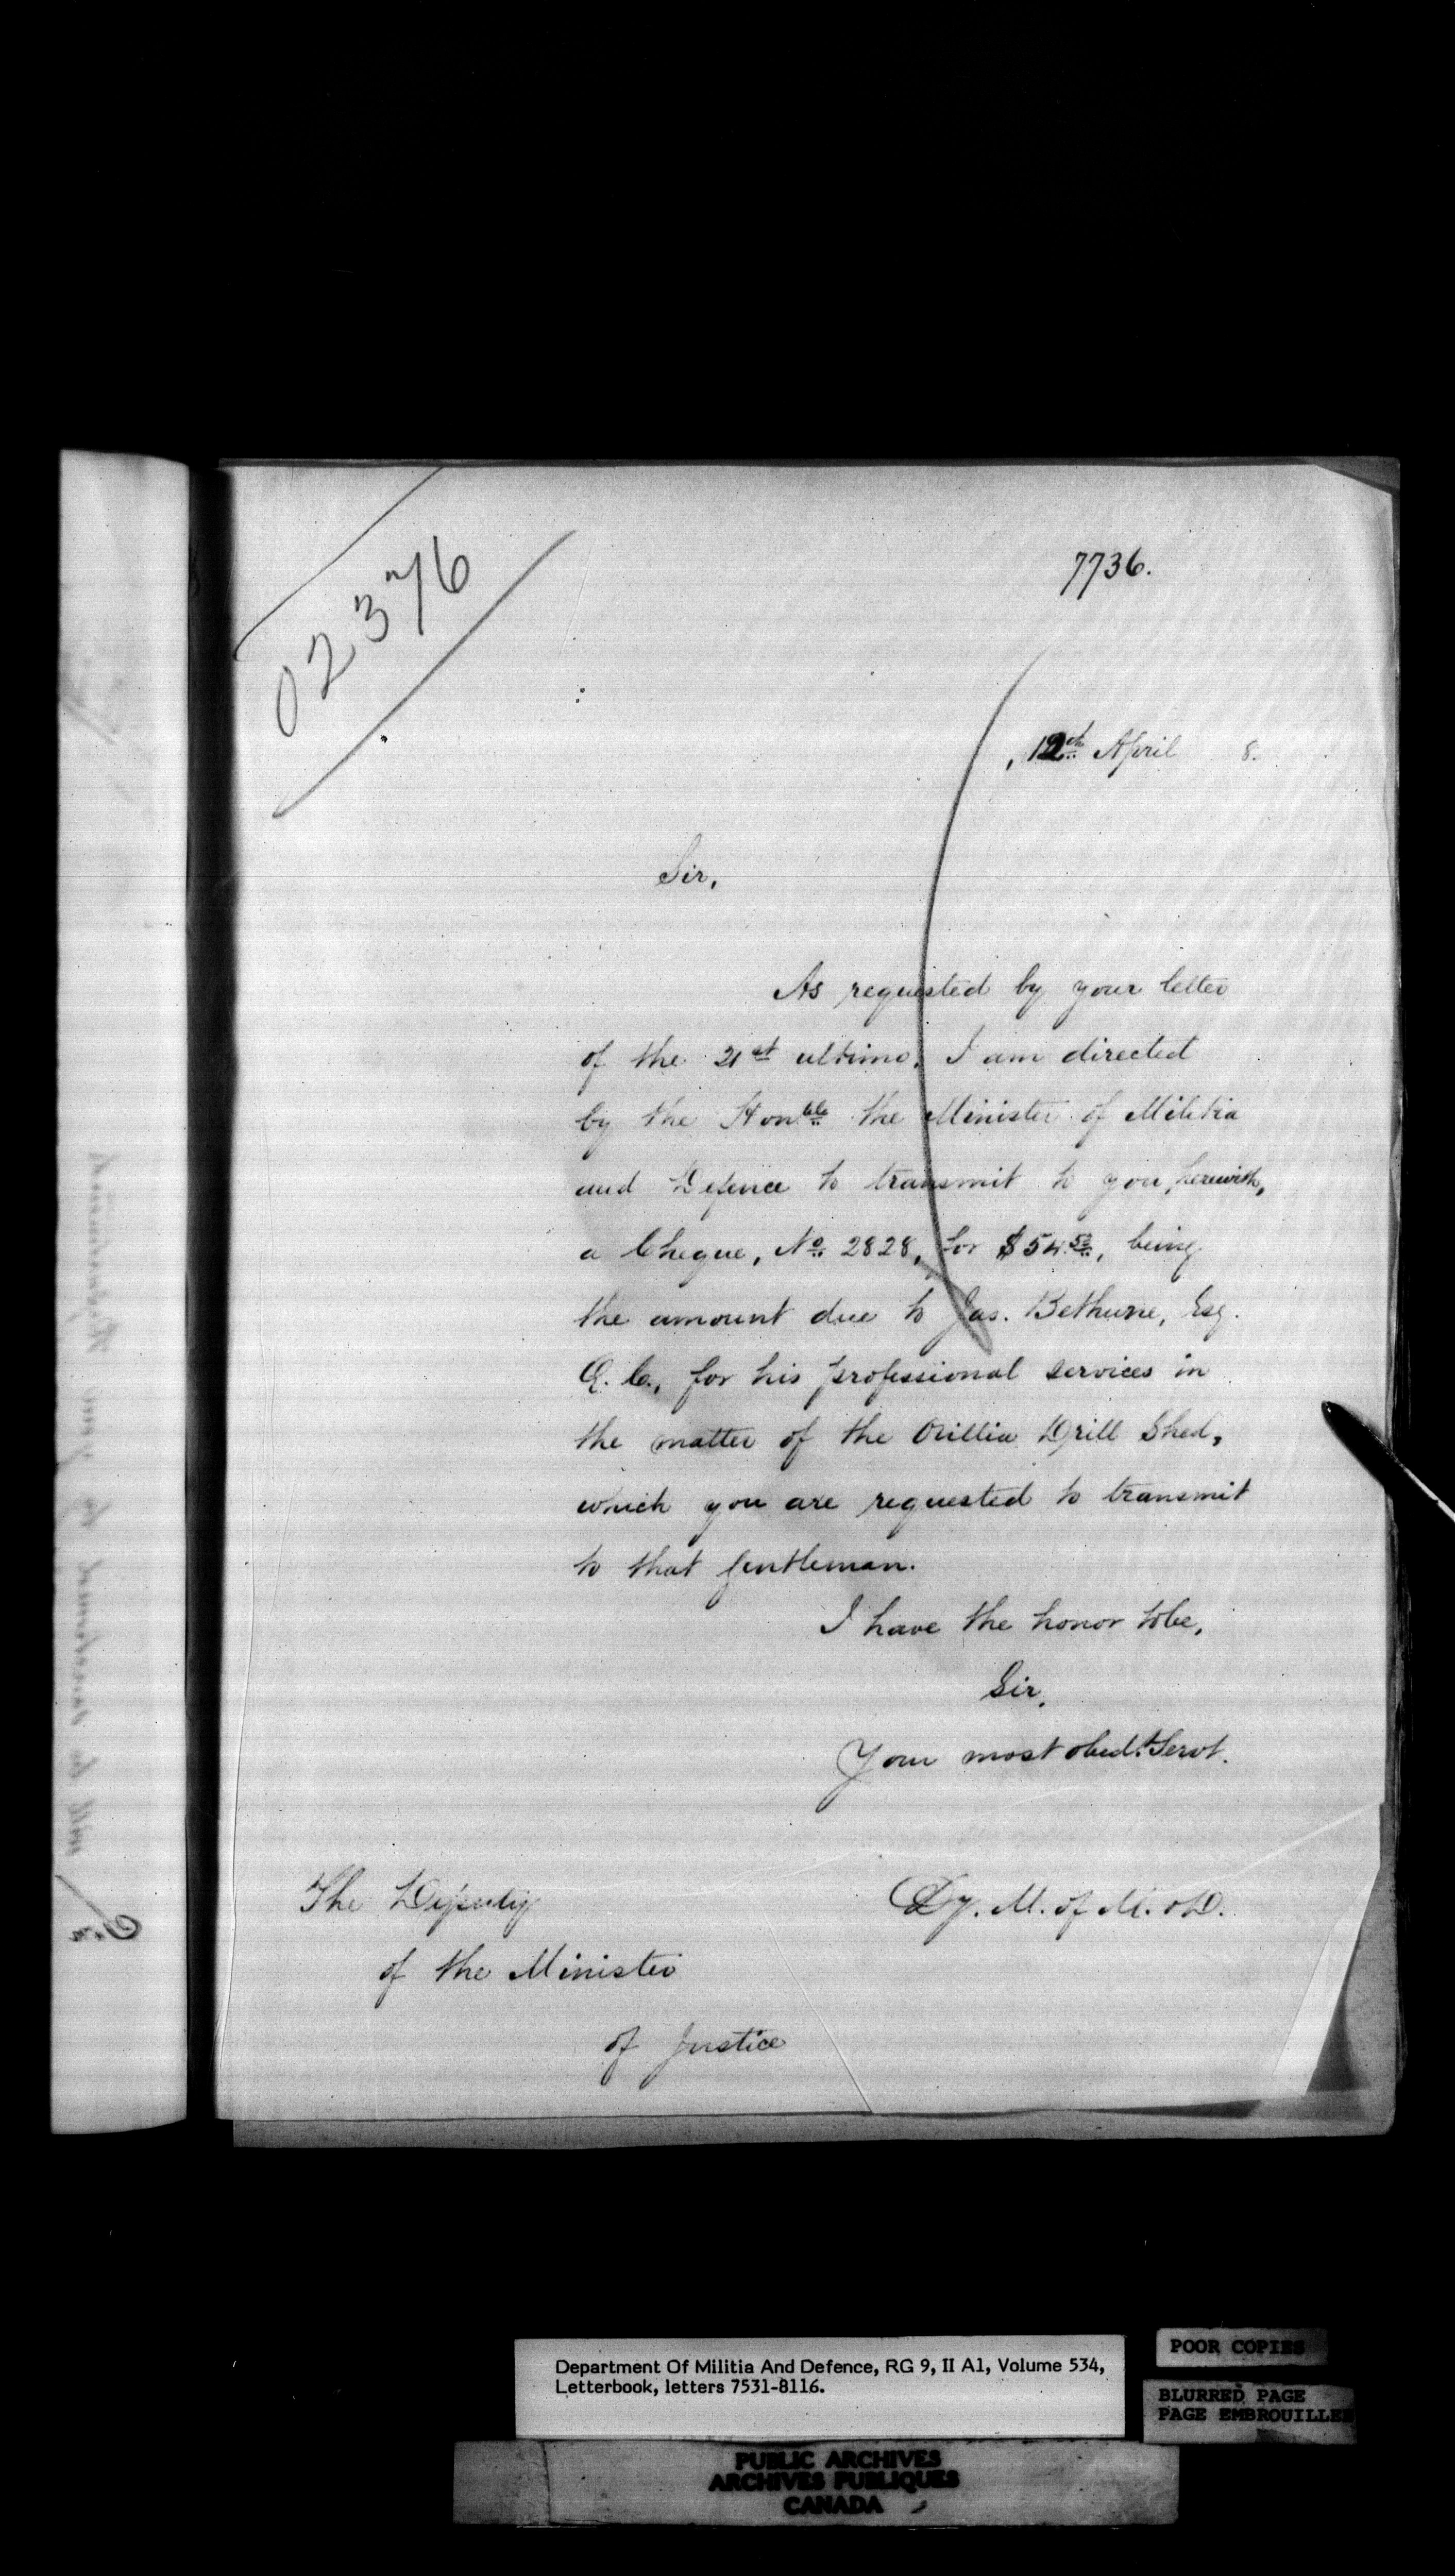 02376
7736.
12th April 8.
Sir,
As requested by your letter
of the 21st ultimo, I am directed
by the Honble the Minister of Militia
and Defence to transmit to you, herewith,
a Cheque, No 2828, for $54.52, being
the amount due to Jas. Bethune, Esq.
Q. C., for his professional services in
the matter of the Orillia Drill Shed,
which you are requested to transmit
to that gentleman.
I have the honor to be,
Sir,
Your most obedt Servt.
Dy. M. of M. & D.
The Deputy
of the Minister
of Justice
Department Of Militia And Defence, RG 9, II A1, Volume 534,
Letterbook, letters 7531-8116.
POOR COPIES
BLURRED PAGE
PAGE EMBROUILLEE
PUBLIC ARCHIVES
ARCHIVES PUBLIQUES
CANADA